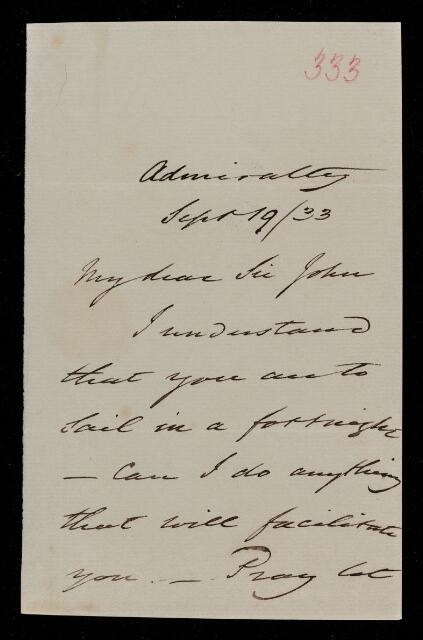 333
Admiralty
Sept 19/33
My dear Sir John
I understand
that you are to
sail in a fortnight
— Can I do anything
that will facilitate
you. — Pray let